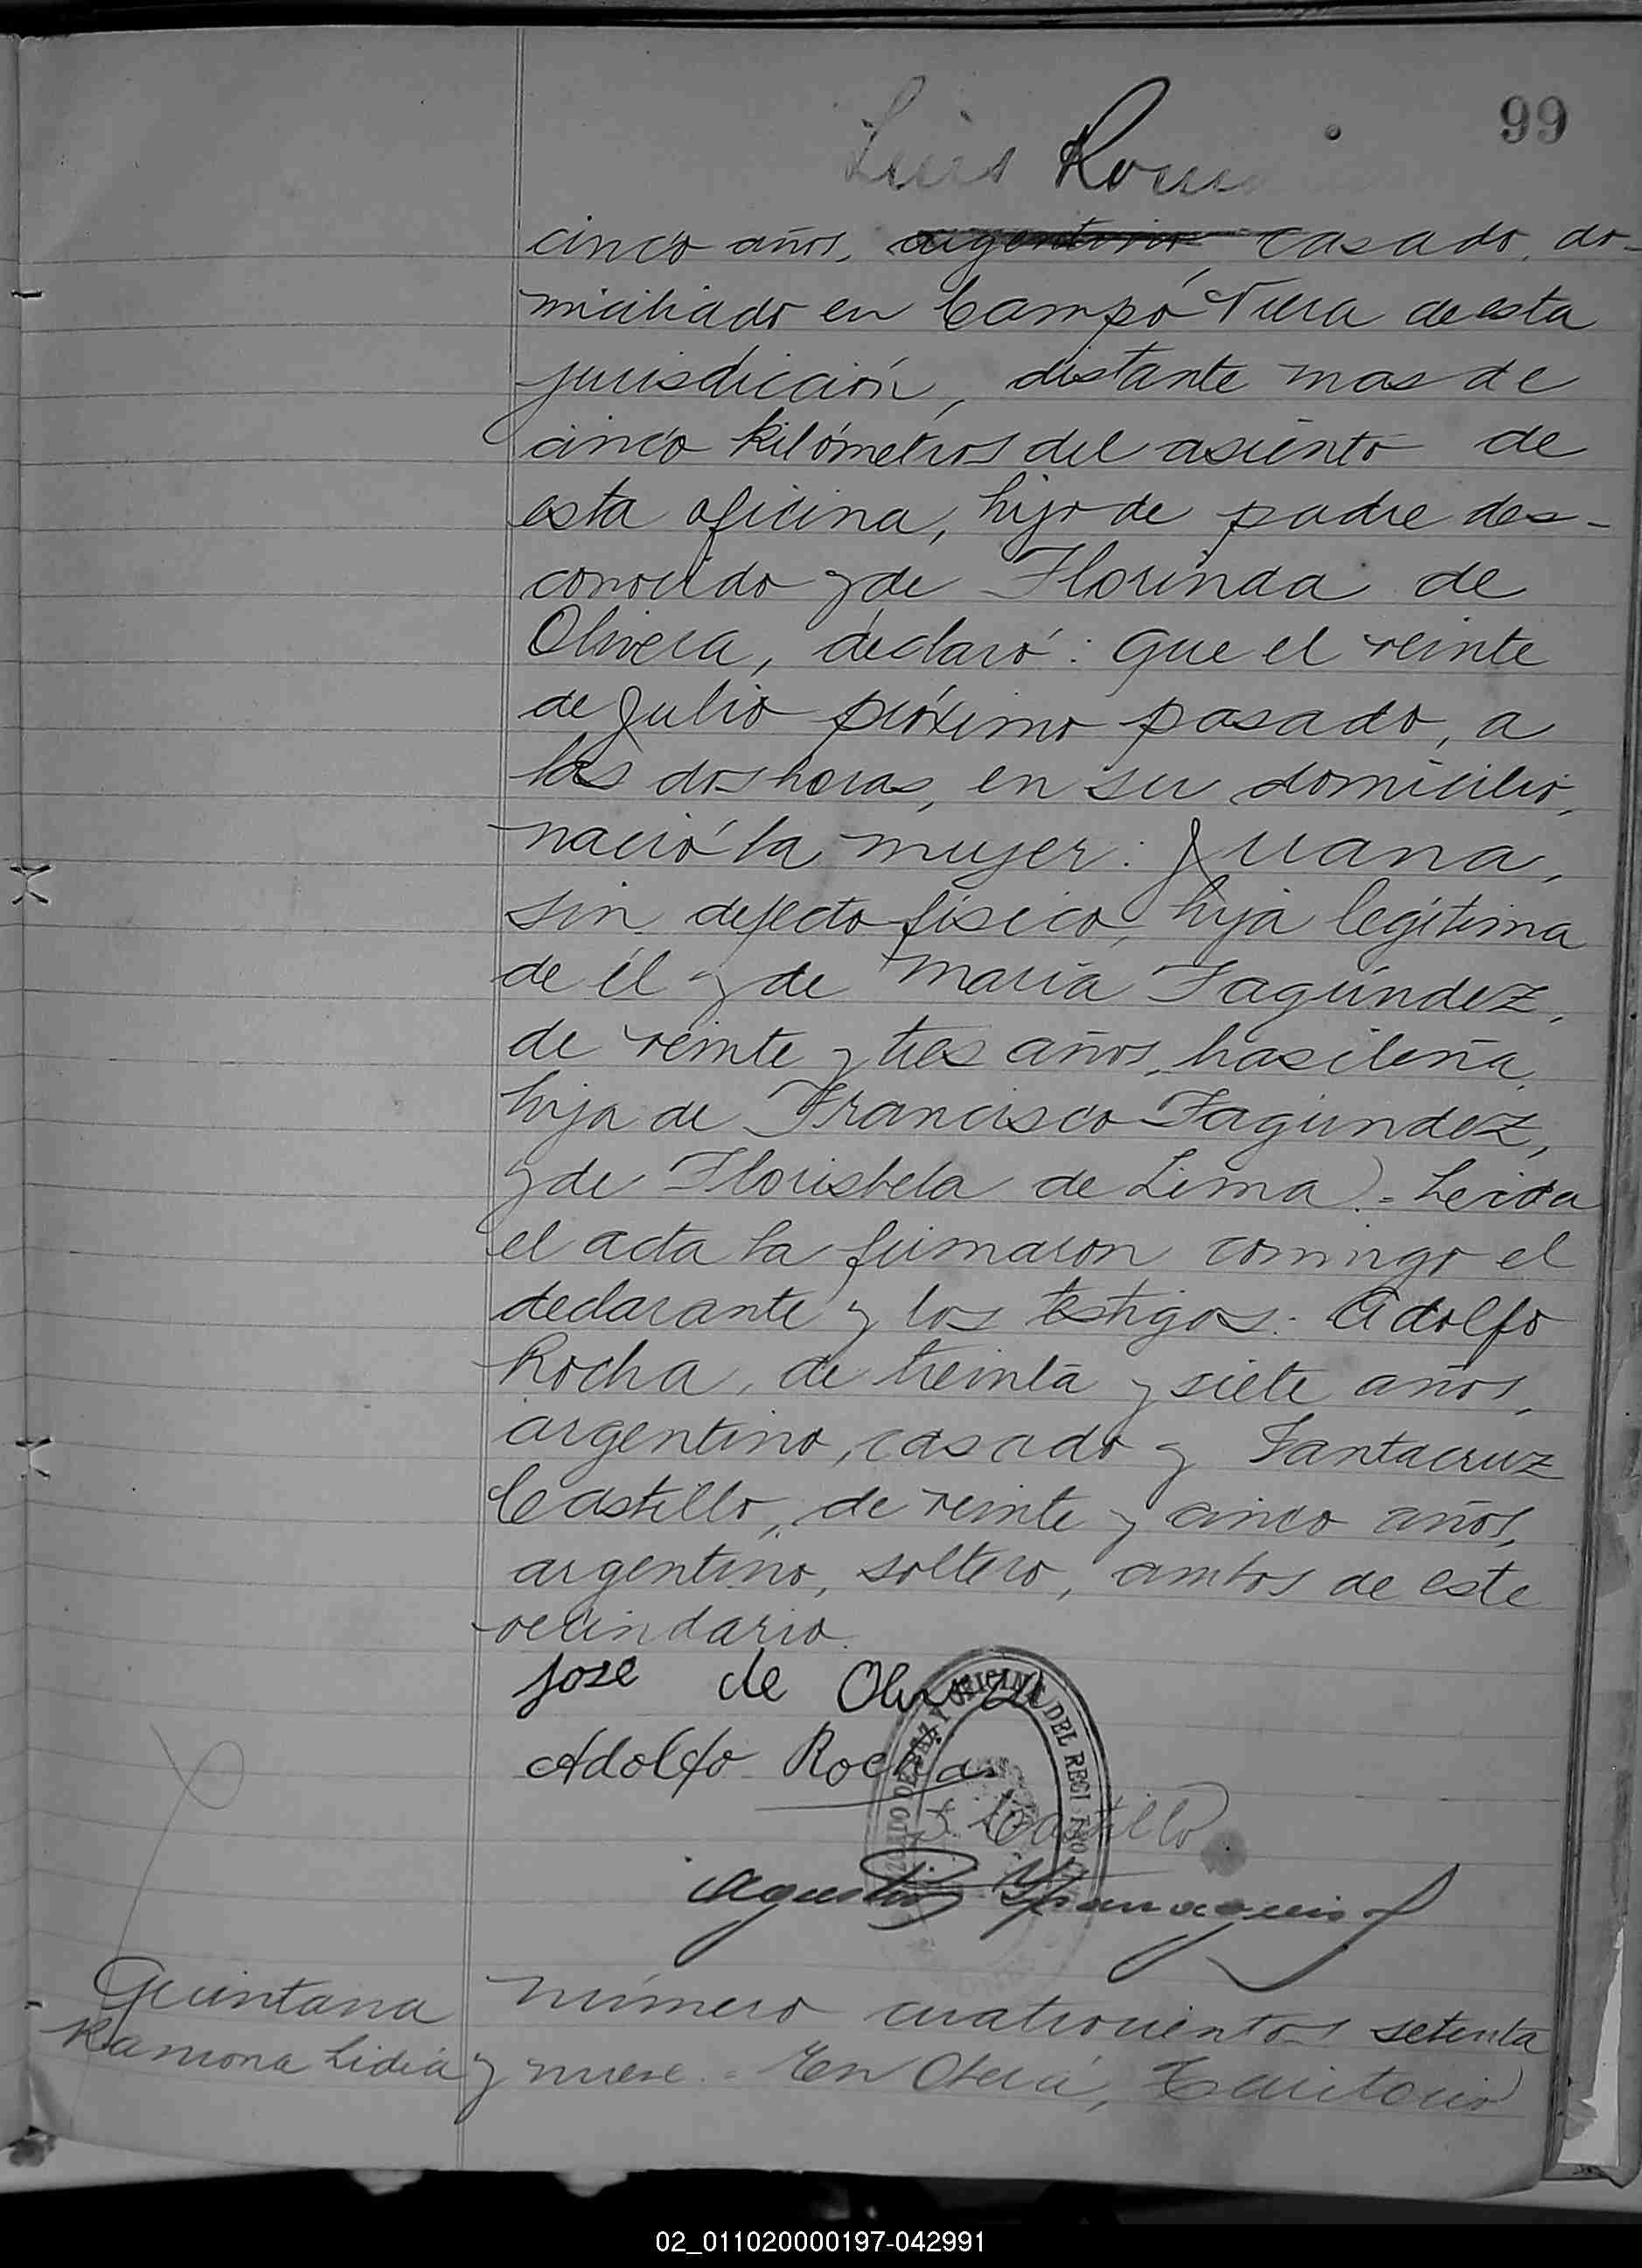 99
Luis Rom
cinco años, argentino casado, do-
miciliado en Campo Viera de esta
jurisdicción, distante mas de
cinco kilómetros del asiento de
esta oficina, hijo de padre des-
conocido y de Florinda de
Olivera, declaró: Que el veinte
de Julio próximo pasado, a
las dos horas, en su domicilio,
nació la mujer: Juana,
sin defecto físico, hija legítima
de él y de María Fagúndez,
de veinte y tres años, brasileña,
hija de Francisco Fagúndez,
y de Florisbela de Lima).= Leida
el acta la firmaron conmigo el
declarante y los testigos: Adolfo
Rocha, de treinta y siete años,
argentino, casado y Santacruz
Castillo, de veinte y cinco años,
argentino, soltero, ambos de este
vecindario.
José de Olivera
Adolfo Rocha
S. Castillo
Agustin
JUZGADO DE PAZ Y OFICINA DEL REGISTRO
Quintana
Ramona Lidia
Número cuatrocientos setenta
y nueve.- En Oberá, Territorio
02_011020000197-042991